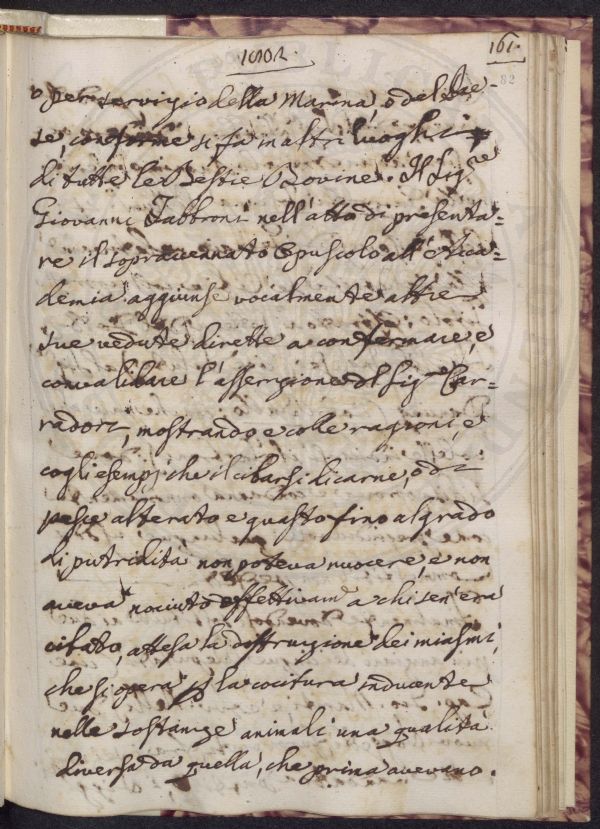 1802.
161.
82
o per servizio della Marina, o del Pae-
se, conforme si fa in altri luoghi
di tutte le Bestie Bovine. Il Sig.re
Giovanni Fabbroni nell'atto di presenta=
re il sopracennato Opuscolo all'Acca=
demia aggiunse vocalmente altre
sue vedute dirette a confermare, e
convalidare l'asserzione del Sig.re Car-
radori, mostrando e colle ragioni, e
cogli esempj che il cibarsi di carne, o di
pesce alterato e guasto fino al grado
di putridità non poteva nuocere e non
aveva nociuto effettivam.e a chi sen'era
cibato, attesa la distruzione dei miasmi,
che si opera p la cocitura inducente
nelle sostanze animali una qualità
diversa da quella, che prima avevano.